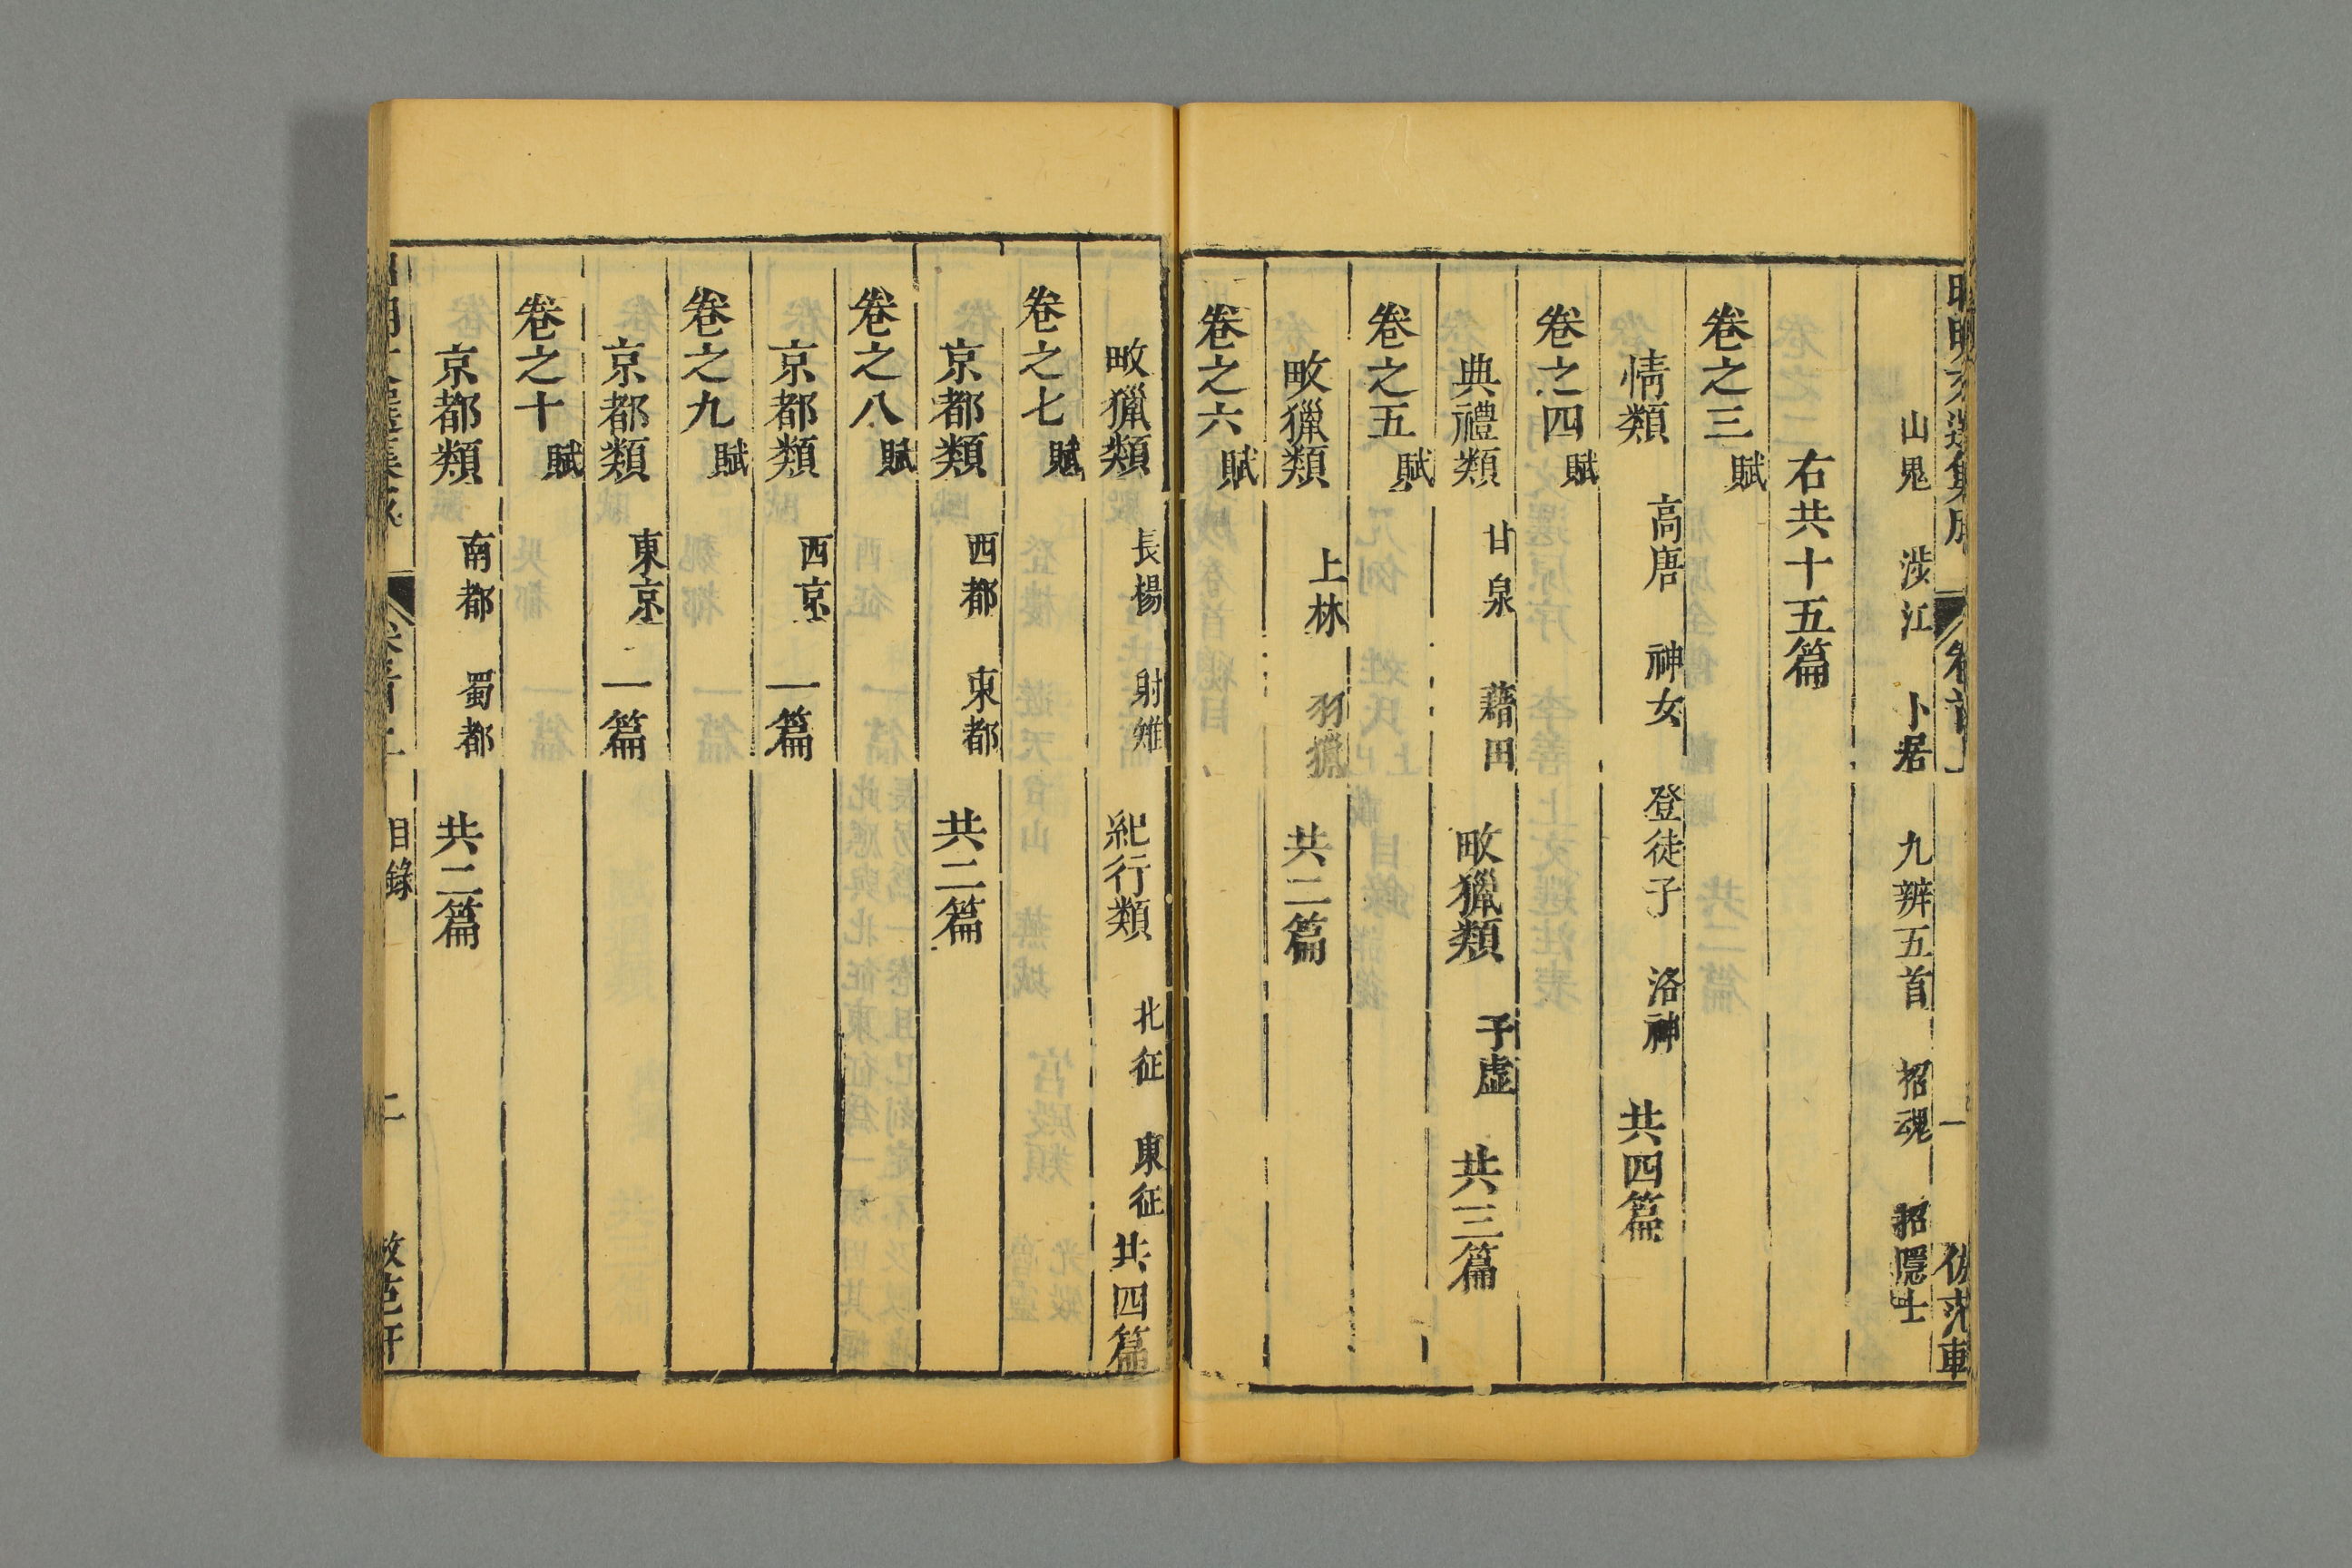 山鬼　涉江　卜居　九辨五首　招魂　招隱士
右共十五篇
卷之三賦
情類　高唐　神女　登徒子　洛神　共四篇
卷之四賦
典禮類　甘泉　藉田　畋獵類　子虛　共三篇
卷之五賦
畋獵類　上林　羽獵　共二篇
卷之六賦
畋獵類　長楊　射雉　紀行類　北征　東征　共四篇
卷之七賦
京都類　西都　東都　共二篇
卷之八賦
京都類　西京　一篇
卷之九賦
京都類　東京　一篇
卷之十賦
京都類　南都　蜀都　共二篇
目錄　二